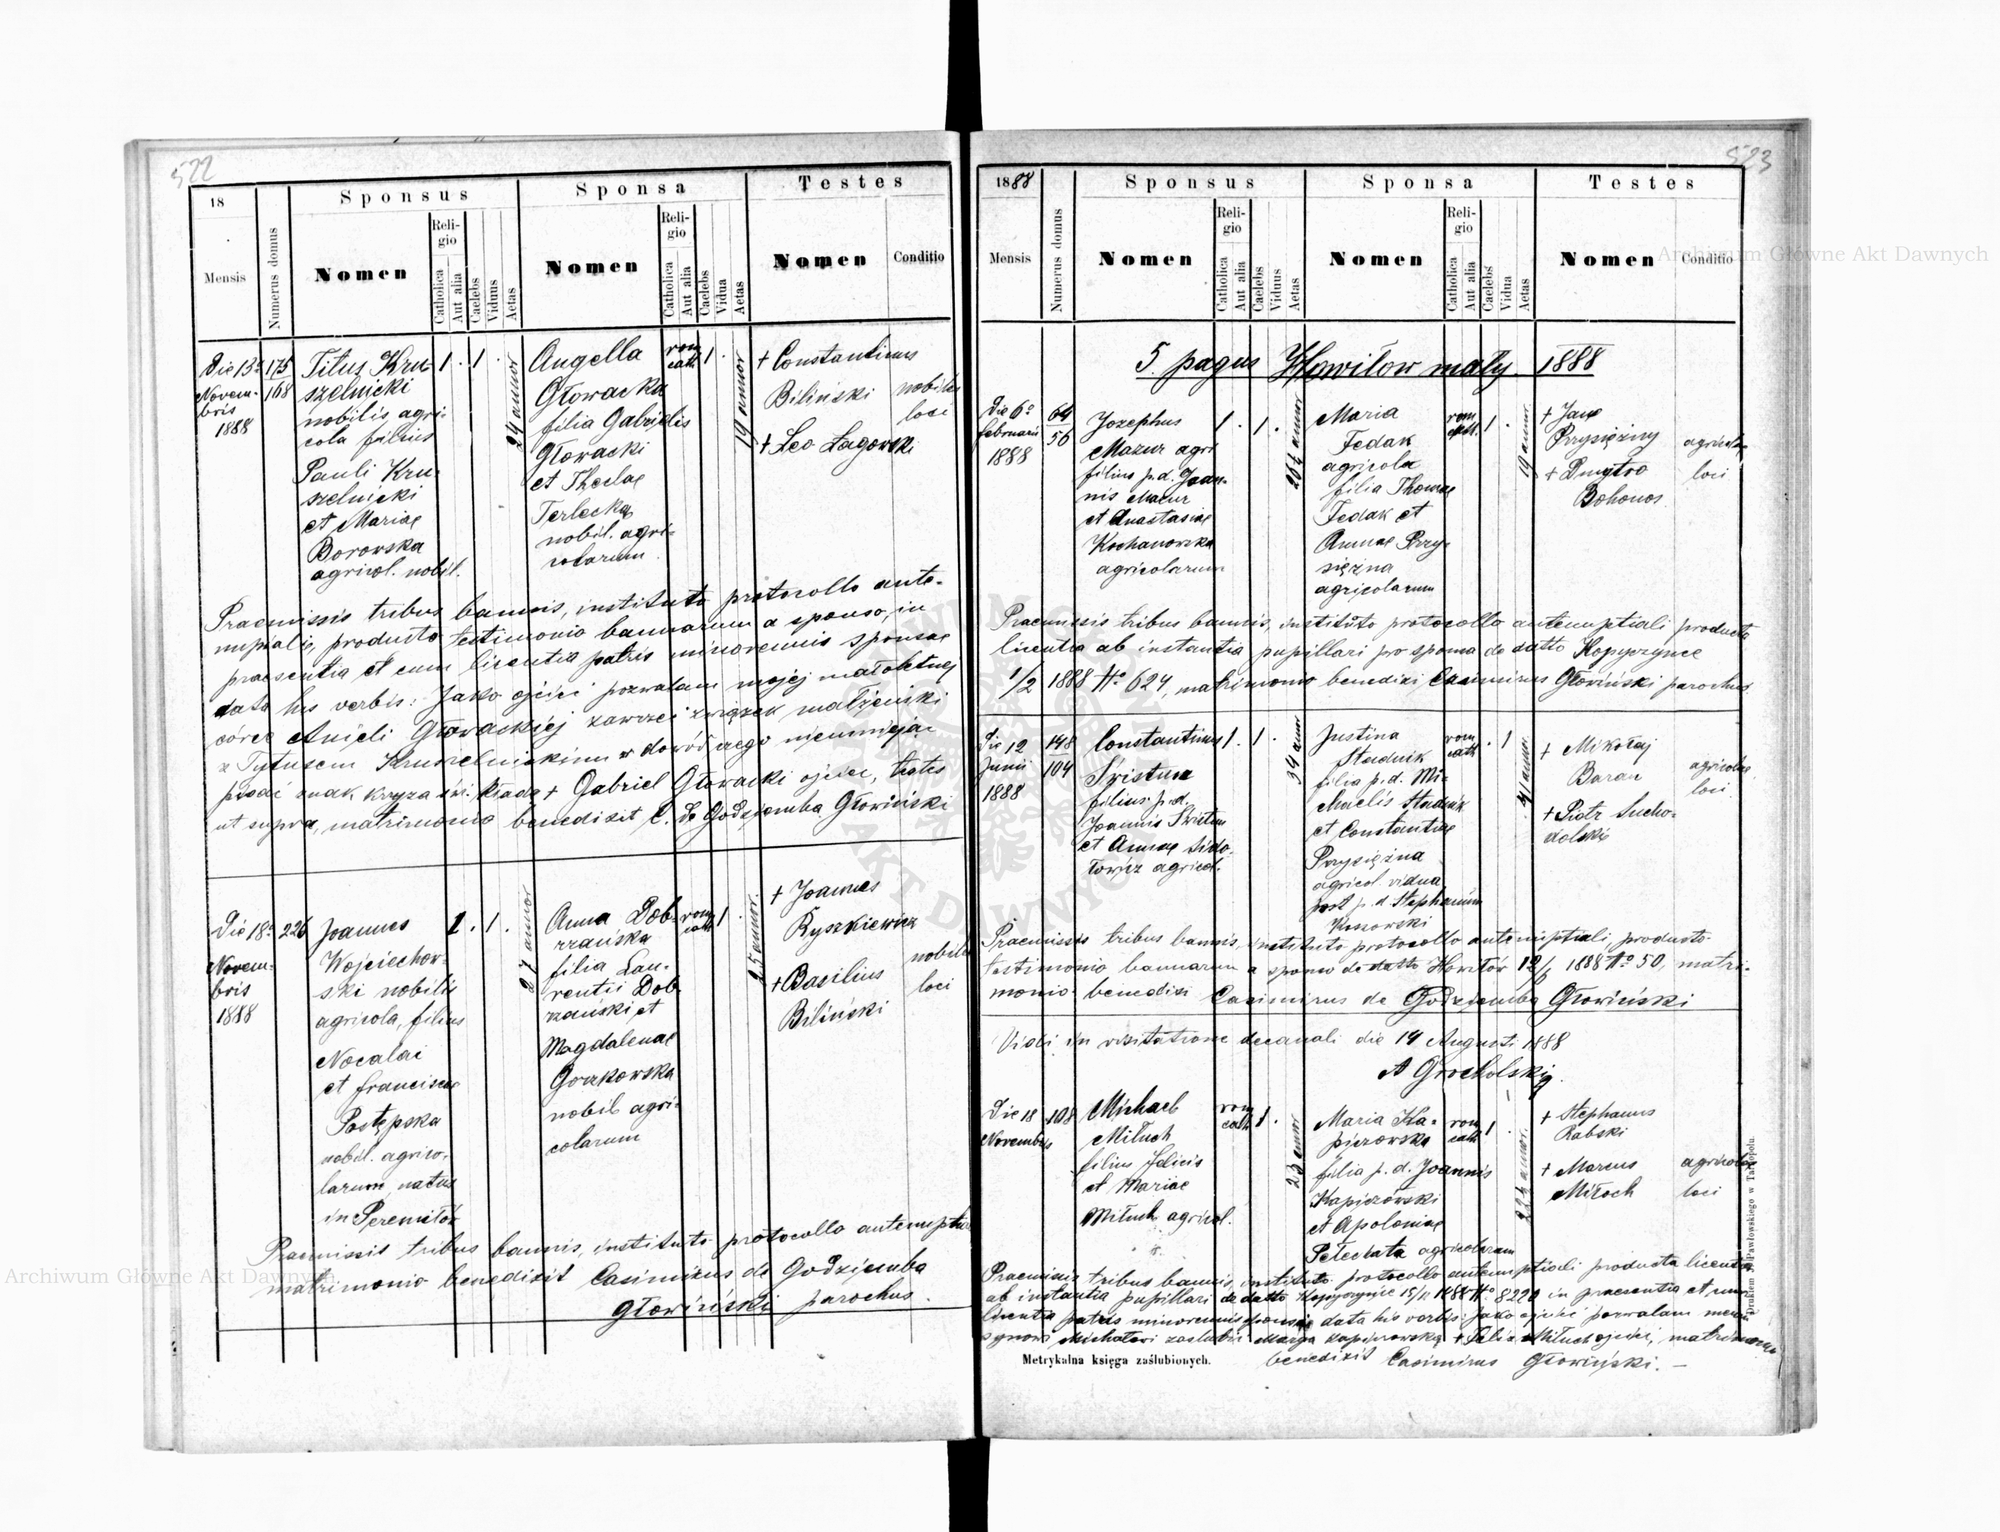 522
18
Mensis
Numerus domus
Sponsus
Nomen
Religio
Catholica
Aut alia
Caelebs
Viduus
Aetas
Sponsa
Nomen
Religio
Catholica
Aut alia
Caelebs
Vidua
Aetas
Testes
Nomen
Conditio
Die 13a
Novem-
bris
1888
175
168
Titus Kru-
szelnicki
nobilis agri-
cola filius
Pauli Kru-
szelnicki
et Mariae
Borowska
agricol. nobil.
1 . 1 .
24 annor
Angella
Głowacka
filia Gabrielis
Głowacki
et Theclae
Terlecka
nobil. agri-
colarum
rom
cath
1 .
19 annor
+ Constantinus
Biliński
+ Leo Łagowski
nobiles
loci
Praemissis tribus bannis, instituto protocollo ante-
nuptiali, producto testimonio bannorum a sponso, in
praesentia et cum licentia patris minorennis sponsae
data his verbis: Jako ojciec pozwalam mojej małoletniej
córce Anieli Głowackiej zawrzeć związek małżeński
z Tytusem Kruszelnickim w dowód czego nieumiejąc
pisać znak krzyża św. kładę + Gabriel Głowacki ojciec, testes
ut supra, matrimonio benedixit C. de Godziemba Głowiński
Die 18a
Novem-
bris
1888
226
Joannes
Wojciechow-
ski nobilis
agricola, filius
Nocalai
et Franciscae
Postępska
nobil. agrico-
larum, natus
in Peremiłów
1 . 1 .
27 annor
Anna Dob-
rzańska
filia Lau-
rentii Dob-
rzański, et
Magdalenae
Gorzkowska
nobil. agri-
colarum
rom
cath
1 .
25 annor.
+ Joannes
Ryszkiewicz
+ Basilius
Biliński
nobiles
loci
Praemissis tribus bannis, instituto protocollo antenuptiali
matrimonio benedixit Casimirus de Godziemba
Głowiński parochus.
523
1888
Mensis
Numerus domus
Sponsus
Nomen
Religio
Catholica
Aut alia
Caelebs
Viduus
Aetas
Sponsa
Nomen
Religio
Catholica
Aut alia
Caelebs
Vidua
Aetas
Testes
Nomen
Conditio
5. pagus Howiłow mały 1888
Die 6o
februarii
1888
64
56
Josephus
Mazur agri
filius p.d. Joan-
nis Mazur
et Anastasiae
Kochanowska
agricolarum
1 . 1 .
Maria
Fedak
agricola
filia Thomae
Fedak et
Annae Przy-
siężna
agricolarum
rom
cath.
1 .
19 annor.
+ Jans
Przysiężny
+ Dmytro
Bohonos
agricolae
loci
Praemissis tribus bannis, instituto protocollo antenuptiali producta
licentia ab instantia pupillari pro sponsa de datto Kopyczynce
1/2 1888 No 624, matrimonio benedixi Casimirus Głowiński parochus
Die 12
Junii
1888
148
104
Constantinus
Świstun
filius p.d.
Joannis Świstun
et Annae Sido-
łowicz agricol.
1 . 1 .
34 annor
Justina
Stadnik
filia p.d. Mi-
chaelis Stadnik
et Constantiae
Przysiężna
agricol. vidua
post p.d. Stephanum
Kossowski
rom
cath
. 1
41 annor.
+ Mikołaj
Baran
+ Piotr Sucho-
dolski
agricolae
loci
Praemissis tribus bannis, instituto protocollo antenuptiali, producto
testimonio bannorum a sponso de datto Howiłów 12/6 1888 No 50, matri-
monio benedixi Casimirus de Godziemba Głowiński
Vidi in visitatione decanali die 14 Augusti 1888
A Grocholski
Die 18
Novembris
108
Michael
Miłuch
filius Felicis
et Mariae
Miłuch agricol.
rom
cath
1 .
23 annor
Maria Ka-
pizowska
filia p.d. Joannis
Kapizowski
et Apoloniae
Pelechata agricolarum
rom
cath
1 .
+ Stephanus
Rabski
+ Marcus
Miłoch
agricolae
loci
Praemissis tribus bannis, instituto protocollo antenuptiali producta licentia
ab instantia pupillari de datto Kopyczynce 15/11 1888 No 8220 in praesentia et cum
licentia patris minorennis sponsi data his verbis: Jako ojciec pozwalam memu
synowi Michałowi zaslubić Marya Kapizowską + Felix Miłuch ojciec, matrimonio
benedixit Casimirus Głowiński. —
Metrykalna księga zaślubionych.
Drukiem J. Pawłowskiego w Tarnopolu.
Archiwum Główne Akt Dawnych
Archiwum Główne Akt Dawnych
ARCHIWUM GŁÓWNE AKT DAWNYCH